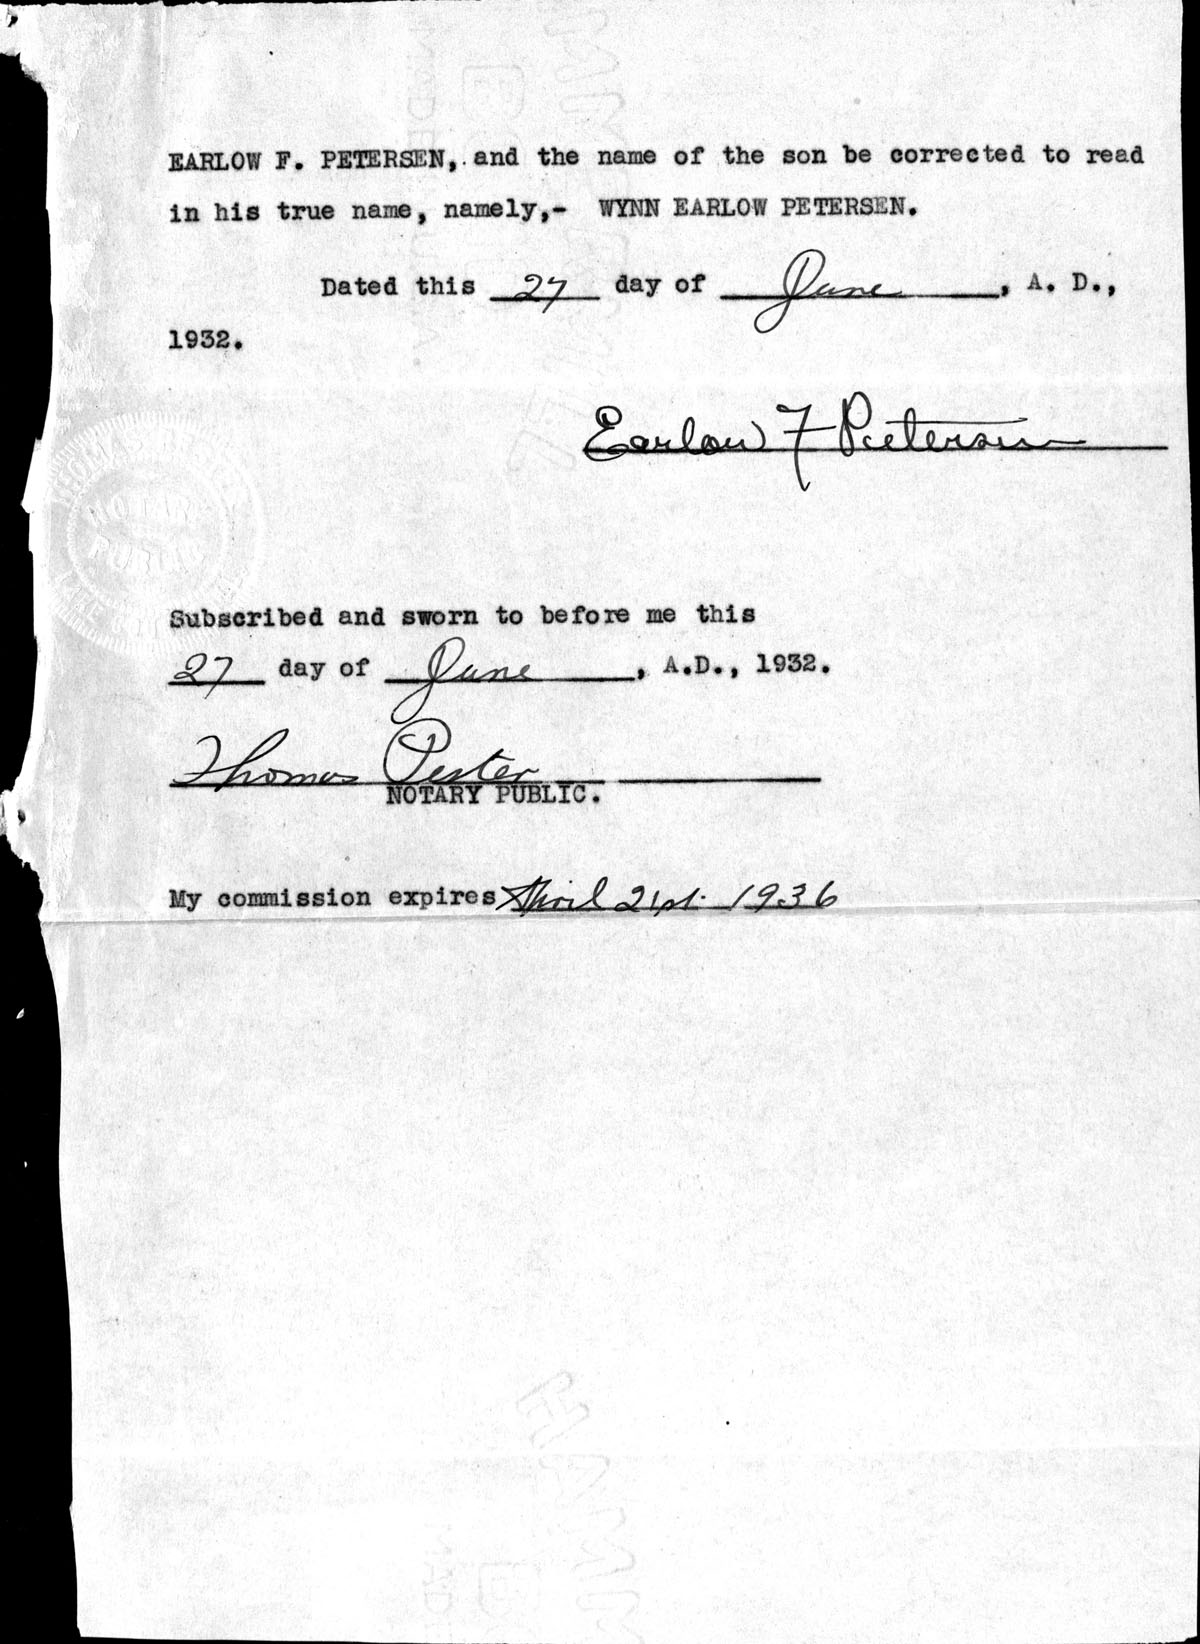 EARLOW F. PETERSEN, and the name of the son be corrected to read
in his true name, namely,- WYNN EARLOW PETERSEN.
Dated this 27 day of June, A. D.,
1932.
Earlow F Petersen
NOTARY
PUBLIC
Subscribed and sworn to before me this
27 day of June, A.D., 1932.
Thomas Pester
NOTARY PUBLIC.
My commission expires April 21st. 1936